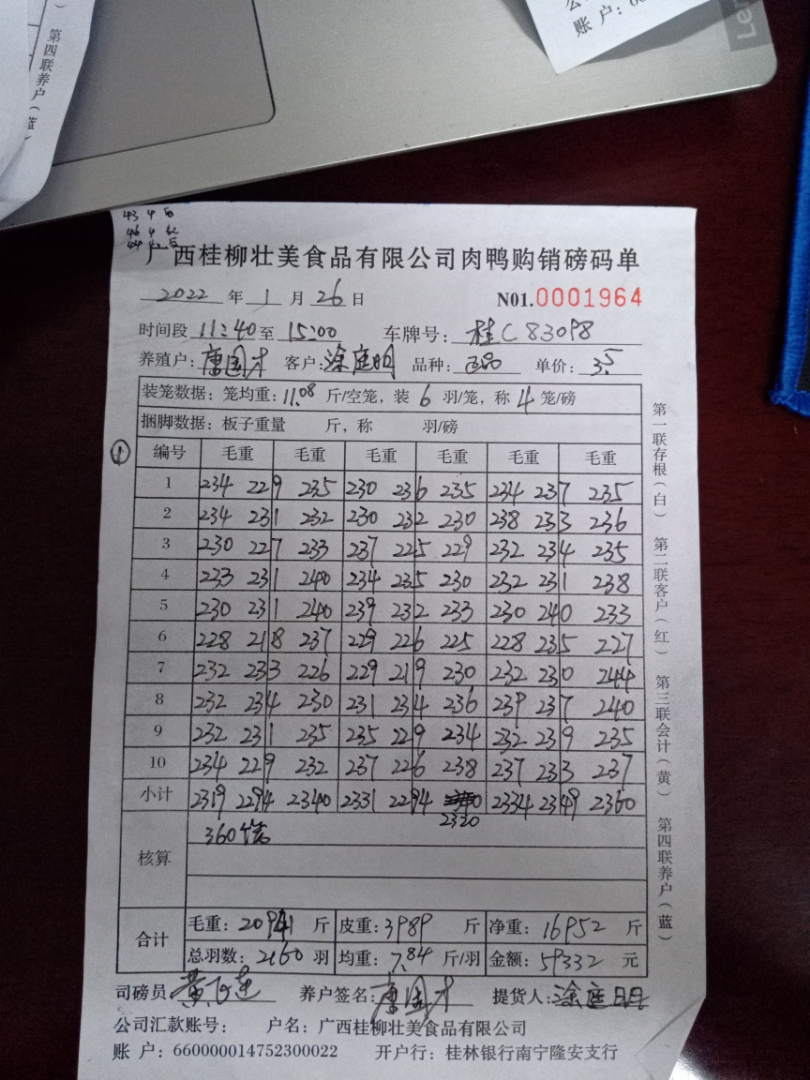 第四联养户（蓝）
账 户：
Len
43 4 6
广西桂柳壮美食品有限公司肉鸭购销磅码单
2022 年 1 月 26 日 N01.0001964
时间段 11:40 至 15:00 车牌号：桂C83098
养殖户：唐国才 客户：涂庭明 品种： 单价：3.5
装笼数据：笼均重：11.08 斤/空笼，装 6 羽/笼，称 4 笼/磅
捆脚数据：板子重量 斤，称 羽/磅
① 编号 毛重 毛重 毛重 毛重 毛重 毛重
1 234 229 235 230 236 235 234 237 235
2 234 231 232 230 232 230 238 233 236
3 230 227 233 237 225 229 232 234 235
4 233 231 240 234 235 230 232 231 238
5 230 231 240 239 232 233 230 240 233
6 228 218 237 229 226 225 228 235 227
7 232 233 226 229 219 230 232 230 244
8 232 234 230 231 234 236 239 237 240
9 232 231 235 235 229 234 232 239 235
10 234 229 232 237 226 238 237 233 237
小计 2319 2294 2340 2331 2294 2320 2334 2349 2360
核算 360笼
合计 毛重：20941 斤 皮重：3989 斤 净重：16952 斤
总羽数：2160 羽 均重：7.84 斤/羽 金额：59332 元
司磅员 养户签名：唐国才 提货人：涂庭明
公司汇款账号： 户名：广西桂柳壮美食品有限公司
账 户：660000014752300022 开户行：桂林银行南宁隆安支行
第一联存根（白） 第二联客户（红） 第三联会计（黄） 第四联养户（蓝）